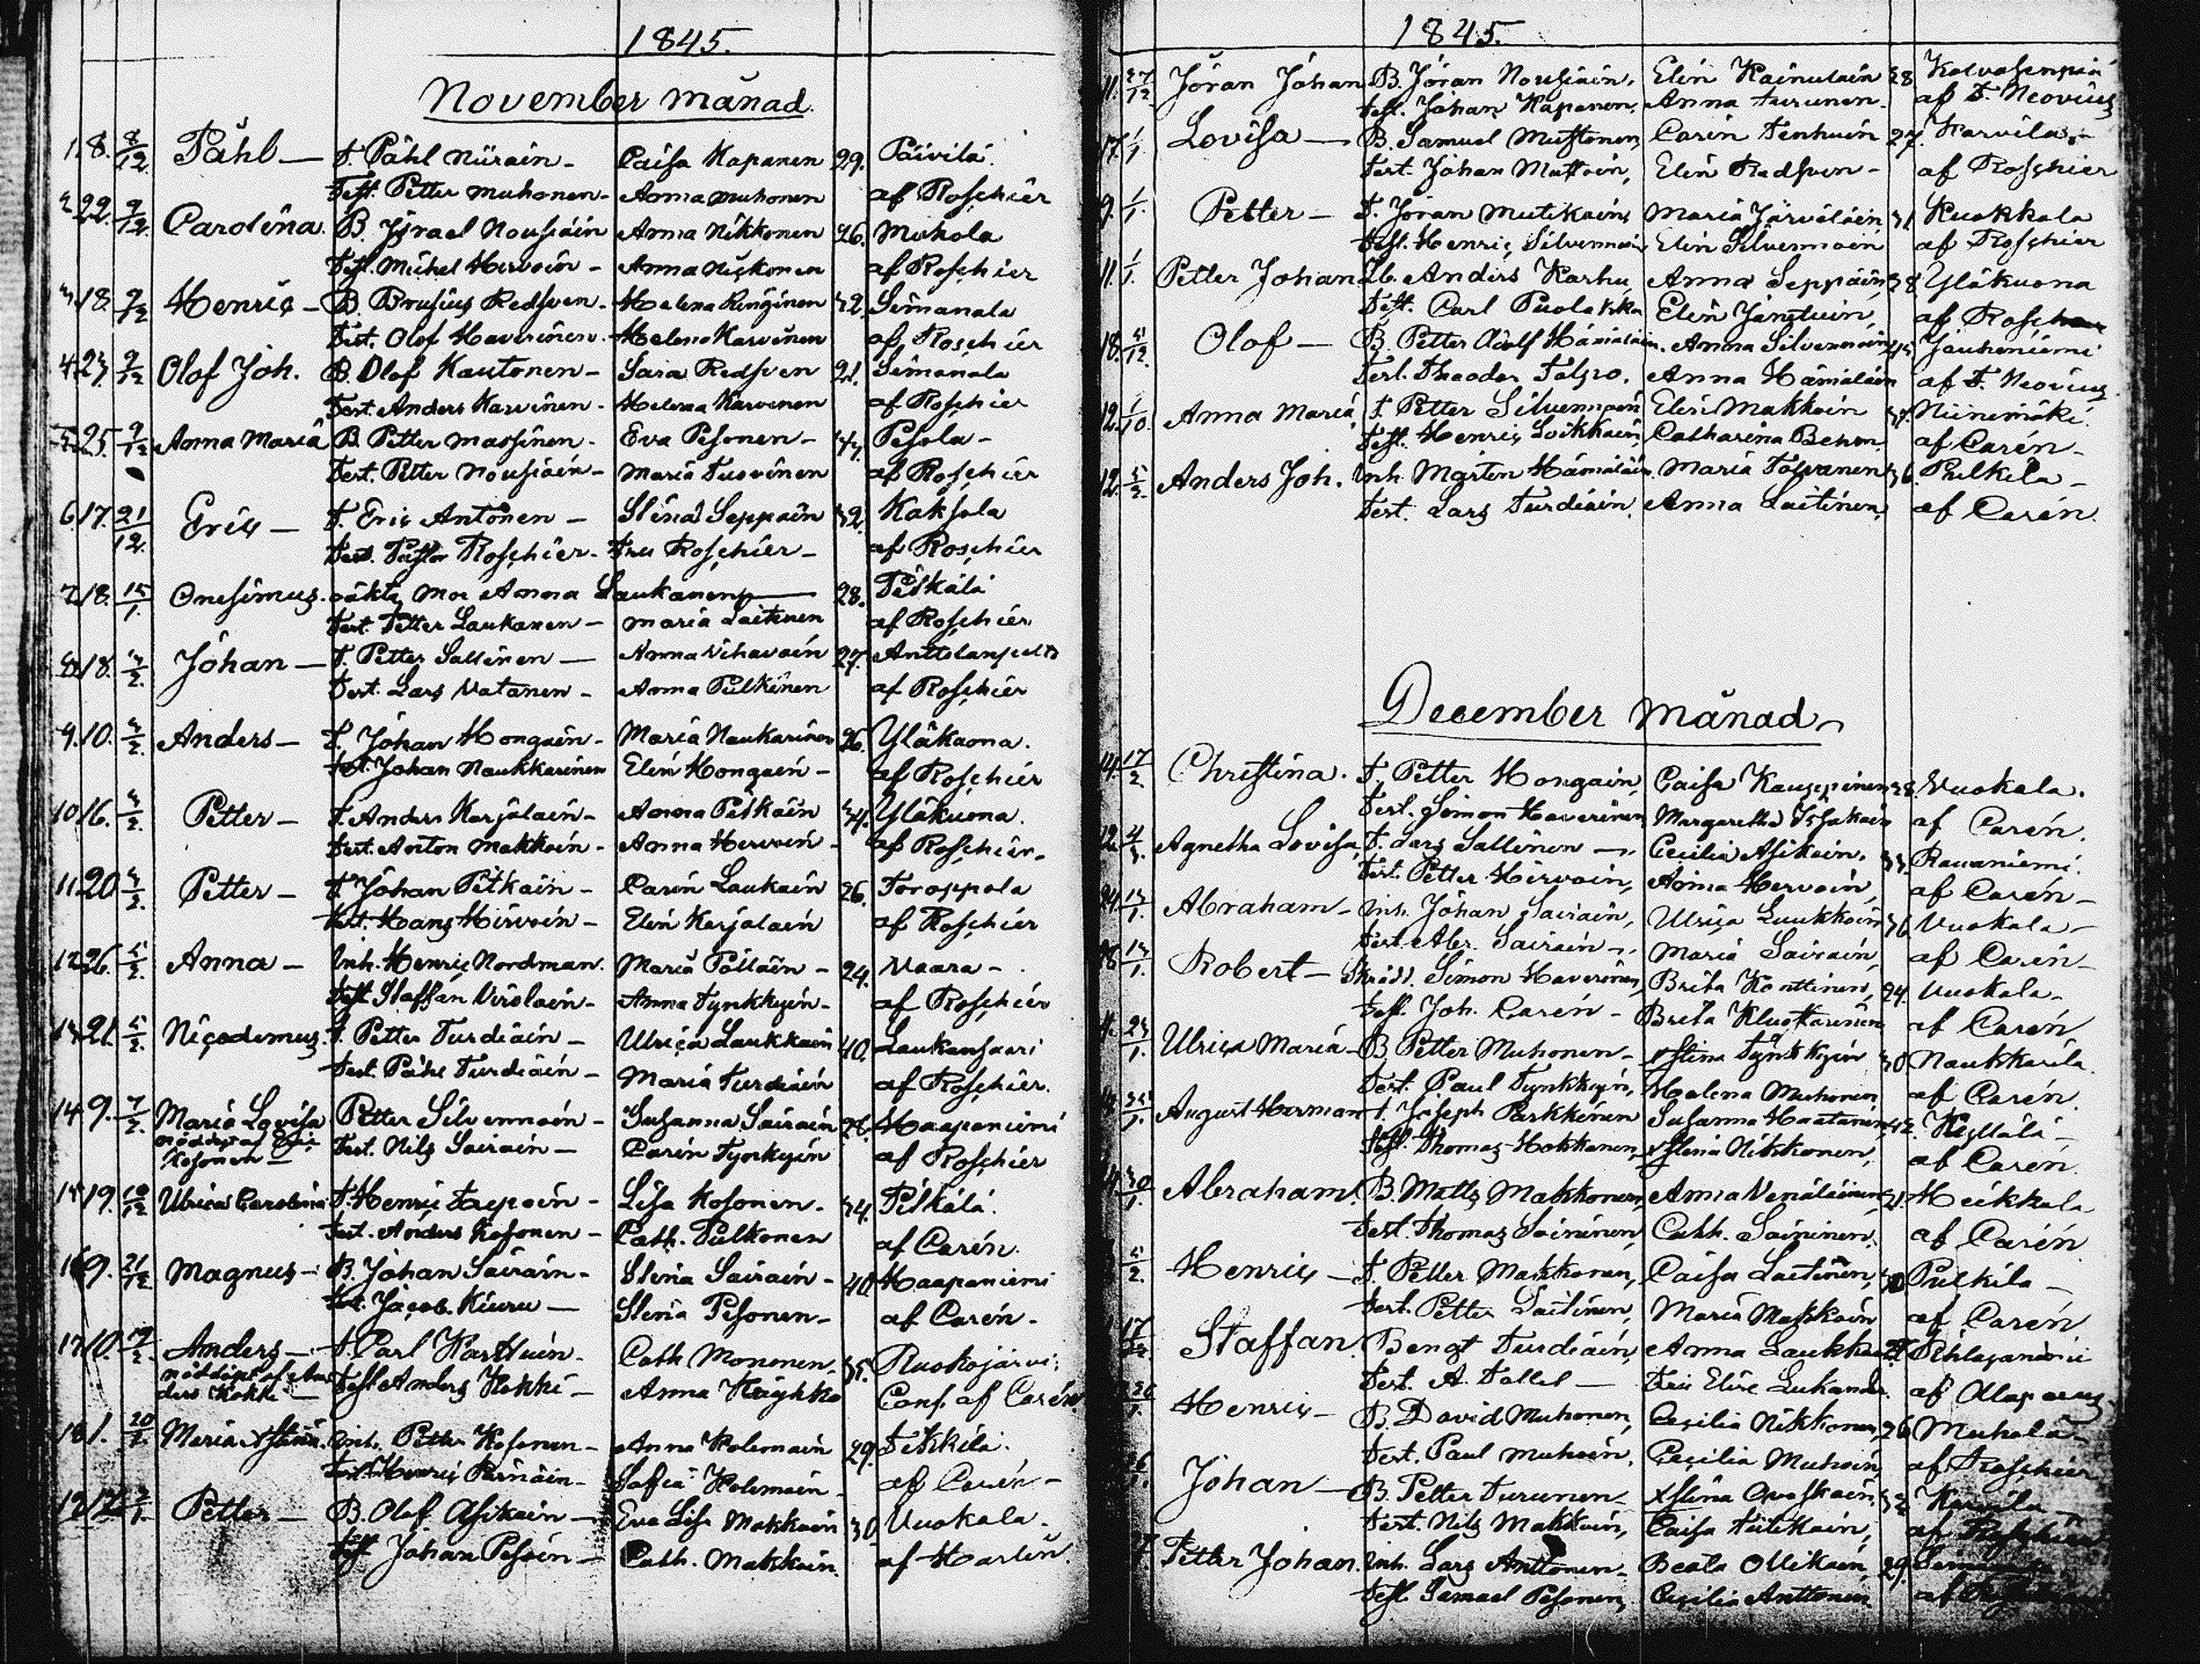 1845.
November månad.
1. 8. 8/12 Påhl — T. Påhl Niirain - Caisa Kapanen 29. Päivilä.
Test. Petter Muhonen - Anna Muhonen af Roschier
2. 22. 9/12 Carolina. B. Israel Nousiain Anna Nikkonen 26. Mukola
Test. Michel Hirvoin - Anna Nickonen af Roschier
3. 18. 9/12 Henric - B. Brusius Redsven - Helena Kinginen 32. Simanala
Test. Olof Haverinen - Helena Karvinen af Roschier
4. 23. 9/12 Olof Joh. B. Olof Kautonen - Sara Redsven 21. Simanala
Test. Anders Karvinen - Helena Karvonen af Roschier
5. 25. 9/12 Anna Maria B. Petter Massinen - Eva Pesonen - Pesola -
Test. Petter Nousiain - Maria Turvinen af Roschier
6. 17. 21/12 Eric - T. Eric Antonen - Stina Seppäin 32. Kaksola
Test. Pastor Roschier - Fru Roschier - af Roschier
7. 18. Onesimus. oäkta, Mor Anna Laukanen 28. Pitkälä
Test. Petter Laukanen - Maria Laitinen af Roschier
8. 18. Johan - T. Petter Sallinen - Anna Vihavain 27.
Test. Lars Vatanen - Anna Pulkinen af Roschier
9. 10. 3/2 Anders - T. Johan Hongain - Maria Naukarinen 26. Yläkuona.
Test. Johan Naukkarinen Elin Hongain - af Roschier
10. 16. 3/2 Petter - T. Anders Karjalain - Anna Pitkäin 34. Yläkuona.
Test. Anton Makkoin - Anna Hirvoin - af Roschier -
11. 20 3/2 Petter - T. Johan Pitkäin - Carin Laukain 26. Toroppola
Test. Hans Hirvoin - Elin Karjalain af Roschier
12. 26. 5/2 Anna - Inh. Henric Nordman. Maria Pöllöin - 24. Vaara -
Test. Staffan Virolain - Anna Tynkkyin - af Roschier
13. 21. 5/2 Nicodemus. T. Petter Turdiain - Ulrica Laukkain 40. Laukansaari
Test. Påhl Turdiain - Maria Turdiain af Roschier.
14. 9. 7/2 Maria Lovisa Petter Silvennoin - Susanna Sairain Haapaniemi
nöddöpt af
Kosonen - Test. Nils Sairain - Carin Tynkyin af Roschier
15. 19. Ulrica Carolina T. Henric - Lisa Kosonen - 34. Pitkälä.
Test. Anders Kosonen - Cath. Pulkonen af Carén.
16. 9. 21/12 Magnus - B. Johan Sairain - Stina Sairain - 40. Haapaniemi
Test. Jacob Kiuru - Stina Pesonen - af Carén -
17. 10. Anders - T. Carl Karttuin - Cath Mononen - 35. Ruokojärvi.
nöddöpt af An-
ders Kokki - Test. Anders Kokki - Anna Käyhkö Conf. af Carén
18. 1. Maria Stina. Inh. Petter Kosonen - Anna Holomain 29. Pitkälä.
Test. Henric - Sofia Holomain - af Carén -
19. 12. Petter - B. Olof Asikain - Eva Lisa Makkoin 30. Vuokala.
Test. Johan Pesoin - Cath. Makkoin. af Harlin.
1845.
11. 27/12 Jöran Johan B. Jöran Nousiain. Elin Kainulain 28.
Test. Johan Kapanen. Anna Turunen. af F. Neovius
17. 1/1 Lovisa - B. Samuel Mustonen Carin Tenhuin 27. Karvila -
Test. Johan Mattoin, Elin Redsven - af Roschier
9. 1/1 Petter - T. Jöran Mutikain Maria Järväläin 31 Kuokkala
Test. Henric Silvennoin Elin Silvennoin af Roschier
11. 1/1 Petter Johan Anders Karhu, Anna Seppäin 38 Yläkuona
Test. Carl Puolakka Elin Jäntuin, af Roschier
18. Olof - B. Petter Adolf Hämäläin. Anna Silvennoin Jouhoniemi
Test. Theodor Tolpo. Anna Hämäläin af F. Neovius
12. Anna Maria, T. Petter Silvennoin Elin Makkoin Niinimäki.
Test. Henric Loikkain Catharina Behm. af Carén -
12. 5/2 Anders Joh. Inh. Mårten Hämäläin. Maria Tolvanen 36. Pulkila -
Test. Lars Turdiain. Anna Laitinen, af Carén.
December månad
17/2 Christina. T. Petter Hongain, Caisa Kauppinen 28. Vuokala.
Test. Simon Haverinen, Margaretha Issakain af Carén.
Agnetha Lovisa, T. Lars Sallinen - Cecilia Asikain. 33. Rauaniemi.
Test. Petter Hirvoin, Anna Hirvoin, af Carén -
Abraham - Inh. Johan Sairain, Ulrica Luukkoin 36. Vuokala -
Test. Abr. Sairain - Maria Sairain, af Carén -
Robert - Skrädd. Simon Haverinen, Brita Konttinen, 24. Vuokala -
Test. Joh. Carén - Brita Kluskarinen af Carén
Ulrica Maria - B. Petter Muhonen - Stina Tynkkyin 30 Naukkarila.
Test. Paul Tynkkyin, Helena Muhonen af Carén.
August Herman T. Joseph Parkkinen Susanna Haatanen 42.
Test. Thomas Hokkanen, Stina Nikkonen, af Carén.
30/1 Abraham. B. Matts Makkonen, Anna Venäläinen Heikkala
Test. Thomas Saininen, Cath. Saininen. af Carén
5/2 Henric - T. Petter Makkonen, Caisa Laitinen, Pulkila -
Test. Petter Laitinen, Maria Makkoin af Carén
Staffan. Bengt Turdiain, Anna Laukka
Test. A. Tallel - Fru Elise Lukander. af Alopaeus
26/1 Henric - B. David Muhonen, Cecilia Nikkonen, 26 Muhola -
Test. Paul Muhoin. Cecilia Muhoin af Roschier
26/1 Johan - B. Petter Turunen - Stina 32 Karvila -
Test. Nils Makkoin, Caisa af Roschier
Petter Johan. Inh. Lars Anttonen - Beata Ollikain, 29.
Test. Samuel Pesonen, Cecilia Anttonen af